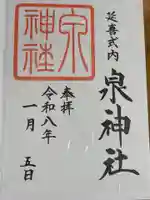 延喜式内
泉神社
泉
神社
奉拝
令和八年
一月
五日